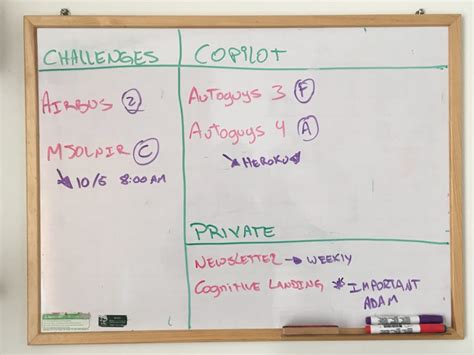 CHALLENGES
AIRBUS 2
MJOLNIR C
10/5 8:00AM
COPILOT
AUTOGUYS 3 F
AUTOGUYS 4 A
HEROKU
PRIVATE
NEWSLETTER → WEEKLY
COGNITIVE LANDING * IMPORTANT
ADAM